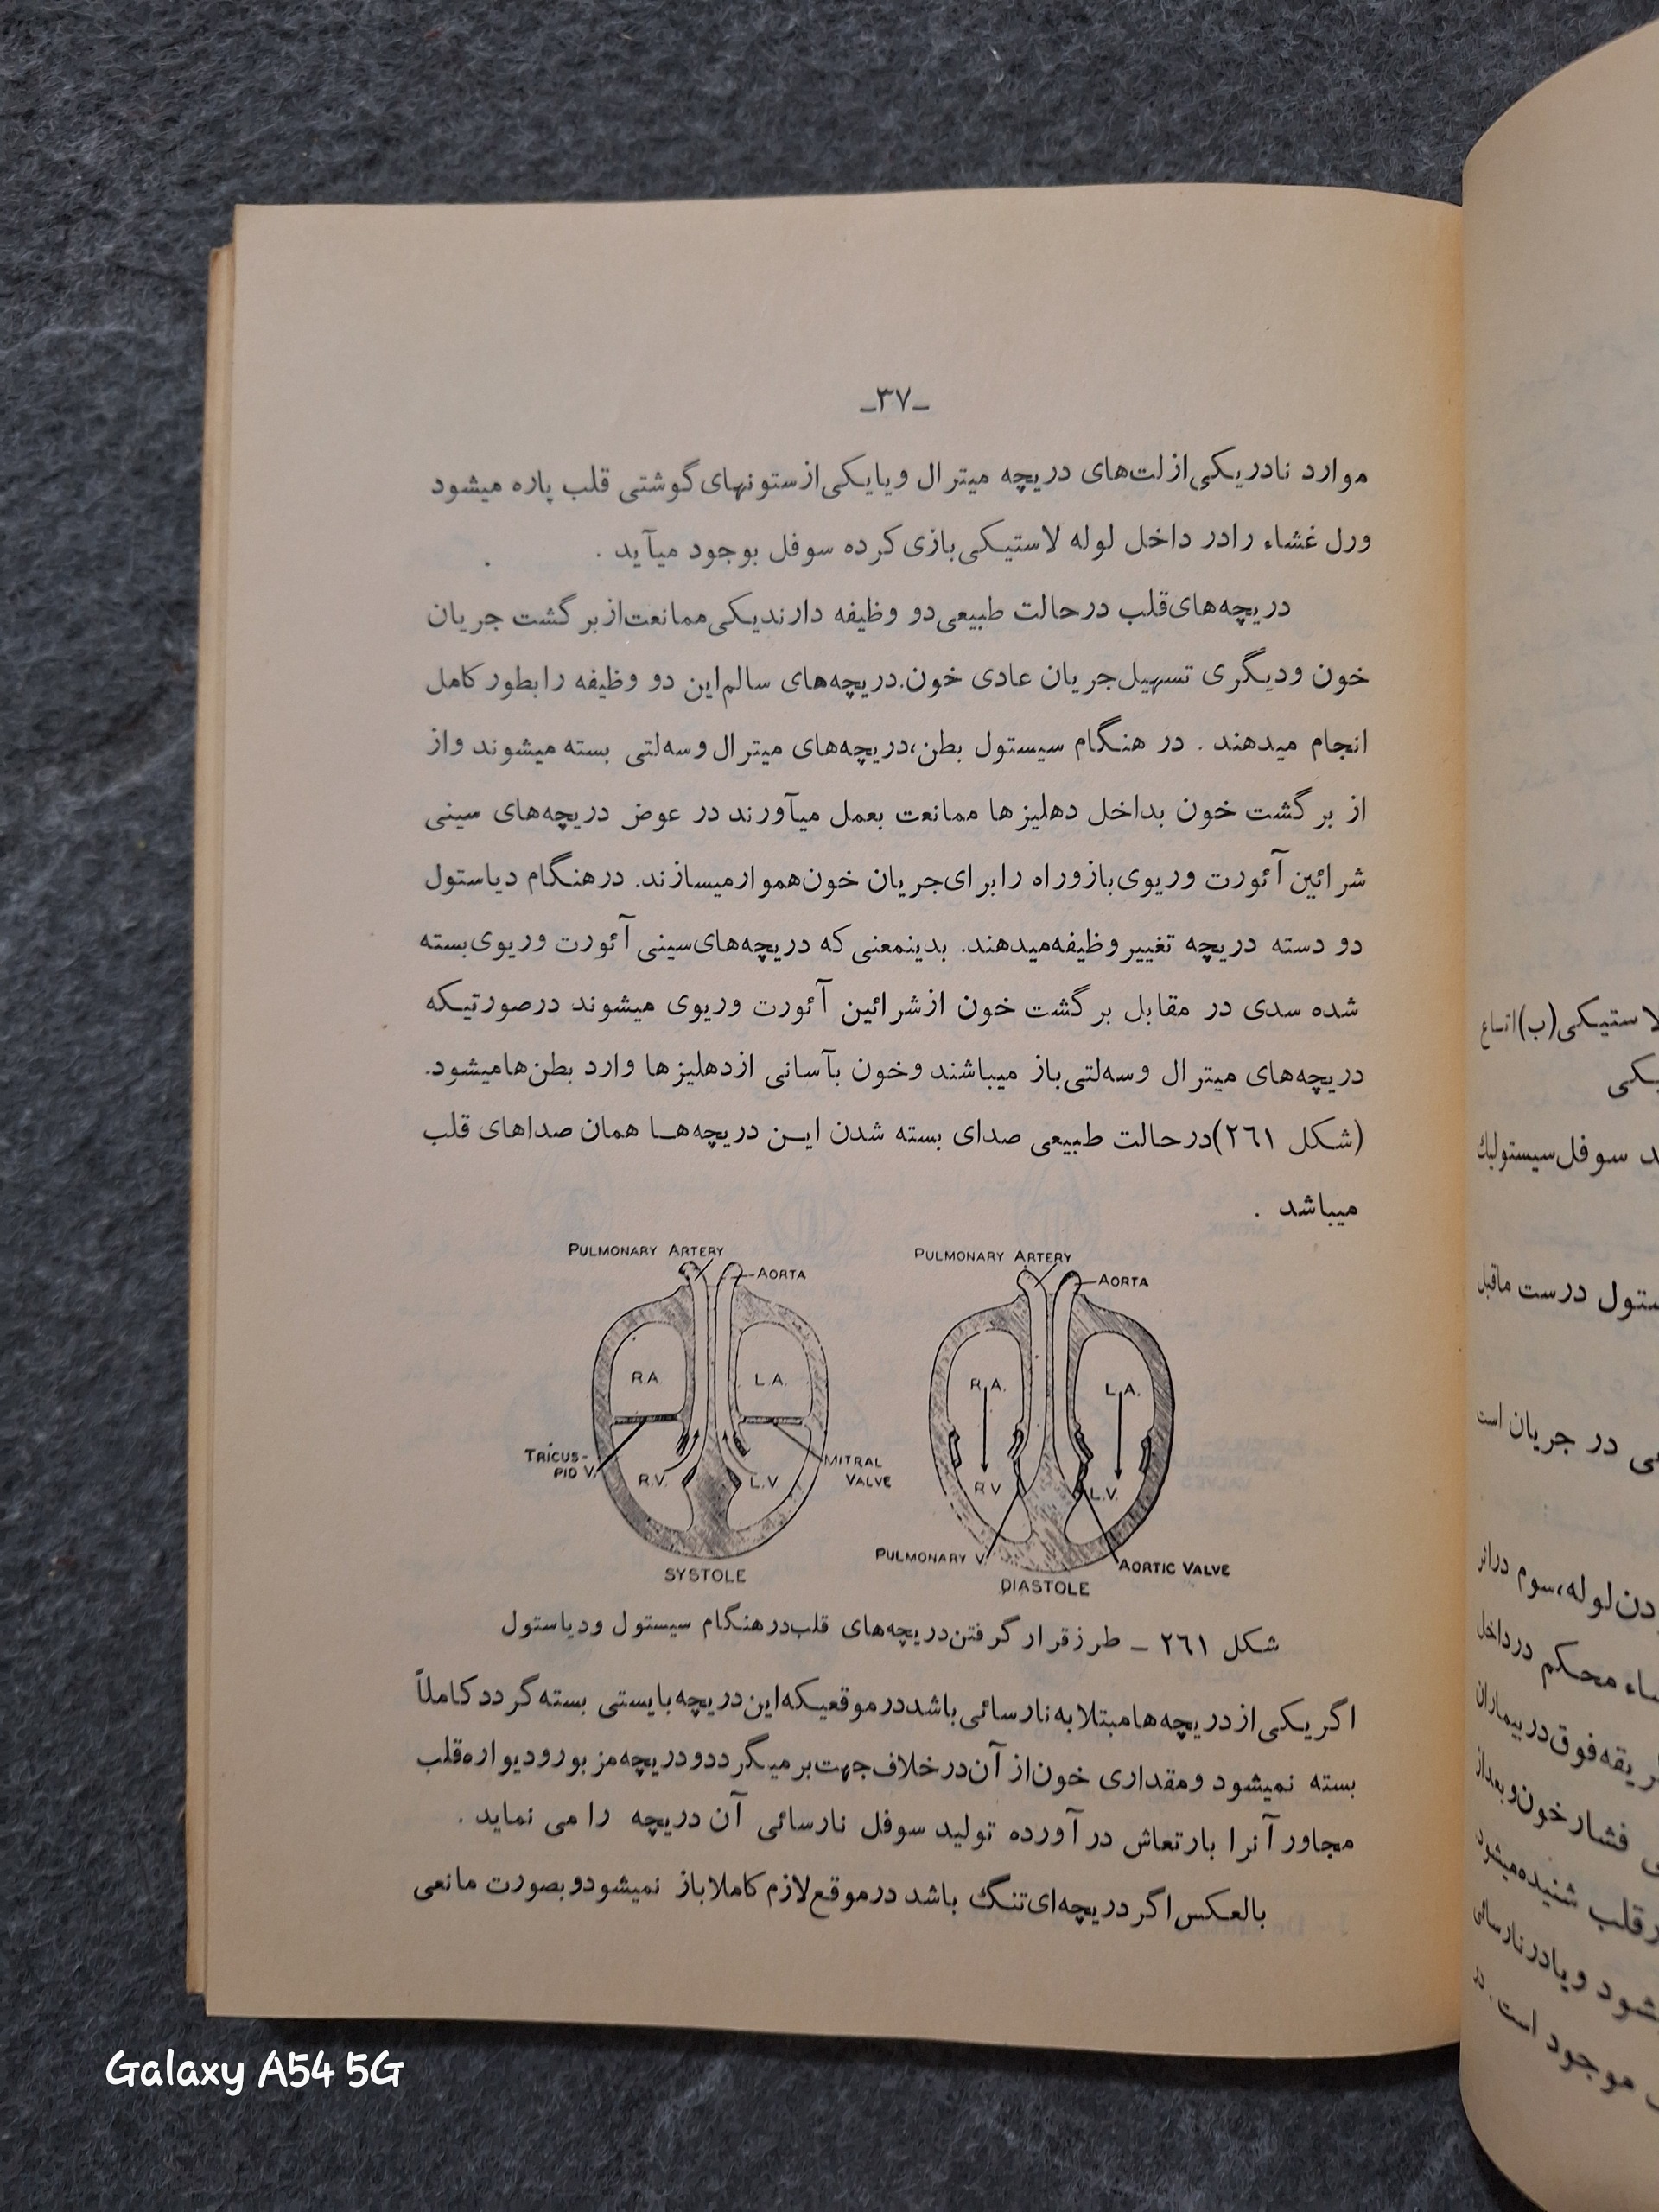 ـ۳۷ـ
موارد نادر یکی از لت‌های دریچه میترال و یا یکی از ستونهای گوشتی قلب پاره میشود
ورل غشاء را در داخل لوله لاستیکی بازی کرده سوفل بوجود میآید .
دریچه‌های قلب در حالت طبیعی دو وظیفه دارند یکی ممانعت از بر گشت جریان
خون و دیگری تسهیل جریان عادی خون. دریچه‌های سالم این دو وظیفه را بطور کامل
انجام میدهند . در هنگام سیستول بطن، دریچه‌های میترال و سه‌لتی بسته میشوند و از
از بر گشت خون بداخل دهلیز ها ممانعت بعمل میآورند در عوض دریچه‌های سینی
شرائین آئورت وریوی باز و راه را برای جریان خون هموار میسازند. در هنگام دیاستول
دو دسته دریچه تغییر وظیفه میدهند. بدینمعنی که دریچه‌های سینی آئورت وریوی بسته
شده سدی در مقابل بر گشت خون از شرائین آئورت وریوی میشوند در صورتیکه
دریچه‌های میترال و سه‌لتی باز میباشند و خون بآسانی از دهلیز ها وارد بطن‌ها میشود.
(شکل ۲٦۱) در حالت طبیعی صدای بسته شدن ایـن دریچه‌هـا همان صداهای قلب
میباشد .
PULMONARY ARTERY
AORTA
R.A.
L.A.
TRICUS-
PID V.
R.V.
L.V
MITRAL
VALVE
SYSTOLE
PULMONARY ARTERY
AORTA
R.A.
L.A.
R V
L.V.
PULMONARY V.
AORTIC VALVE
DIASTOLE
شکل ۲٦۱ ـ طرز قرار گرفتن دریچه‌های قلب در هنگام سیستول و دیاستول
اگر یکی از دریچه‌ها مبتلا به نارسائی باشد در موقعیکه این دریچه بایستی بسته گردد کاملاً
بسته نمیشود و مقداری خون از آن در خلاف جهت بر میگردد و دریچه مزبور و دیواره قلب
مجاور آنرا بارتعاش در آورده تولید سوفل نارسائی آن دریچه را می نماید .
بالعکس اگر دریچه‌ای تنگ باشد در موقع لازم کاملا باز نمیشود و بصورت مانعی
لاستیکی (ب) اتساع
سوفل سیستولیک
درست ماقبل
در جریان است
دن لوله، سوم در اثر
محکم در داخل
فوق در بیماران
فشار خون و بعد از
قلب شنیده میشود
و یا در نارسائی
موجود است . در
Galaxy A54 5G